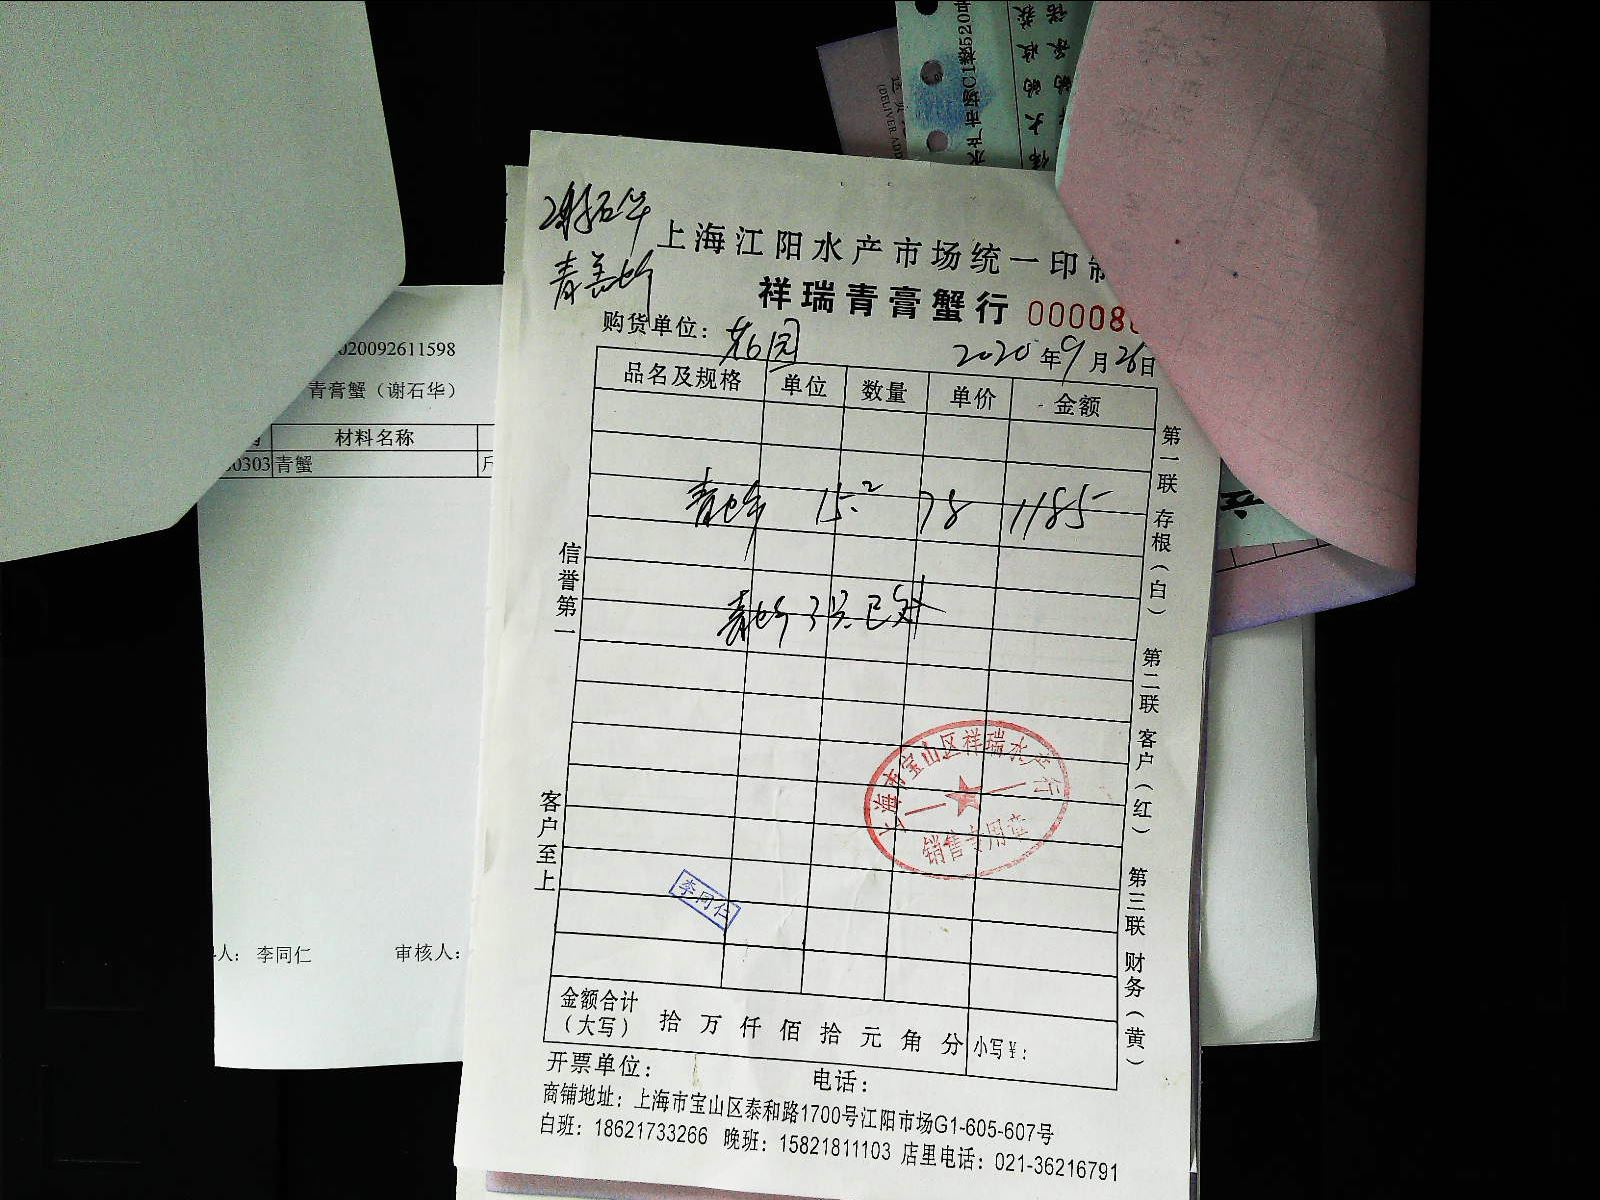 谢石华
青膏蟹
上海江阳水产市场统一印制
祥瑞青膏蟹行 00008
购货单位： 花园 2020年9月26日
品名及规格 单位 数量 单价 金额
青蟹 15.2 78 1185
青蟹 3只 已死
信誉第一
客户至上
第一联 存根（白） 第二联 客户（红） 第三联 财务（黄）
上海市宝山区祥瑞水产行
销售专用章
李同仁
金额合计
（大写） 拾 万 仟 佰 拾 元 角 分 小写￥：
开票单位： 电话：
商铺地址：上海市宝山区泰和路1700号江阳市场G1-605-607号
白班：18621733266 晚班：15821811103 店里电话：021-36216791
020092611598
青膏蟹（谢石华）
材料名称
0303 青蟹 斤
人： 李同仁 审核人：
水产市场C1楼520号
(DELIVER ADD